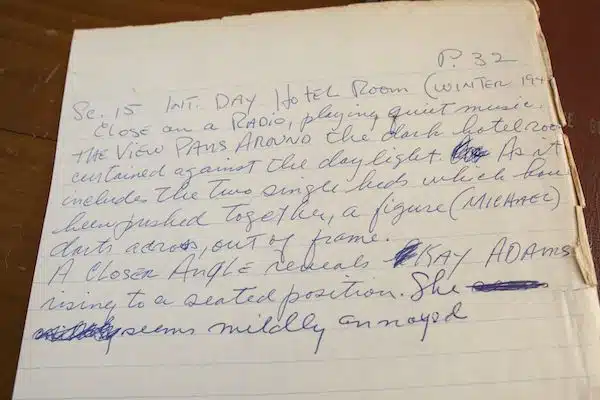 P. 32
Sc. 15 INT. DAY HOTEL ROOM (WINTER 194
CLOSE on a RADIO, playing quiet music.
THE VIEW PANS AROUND the dark hotel roo
curtained against the daylight. As it
includes the two single beds which have
been pushed together, a figure (MICHAEL)
darts across, out of frame.
A CLOSER ANGLE reveals KAY ADAMS
rising to a seated position. She
seems mildly annoyed